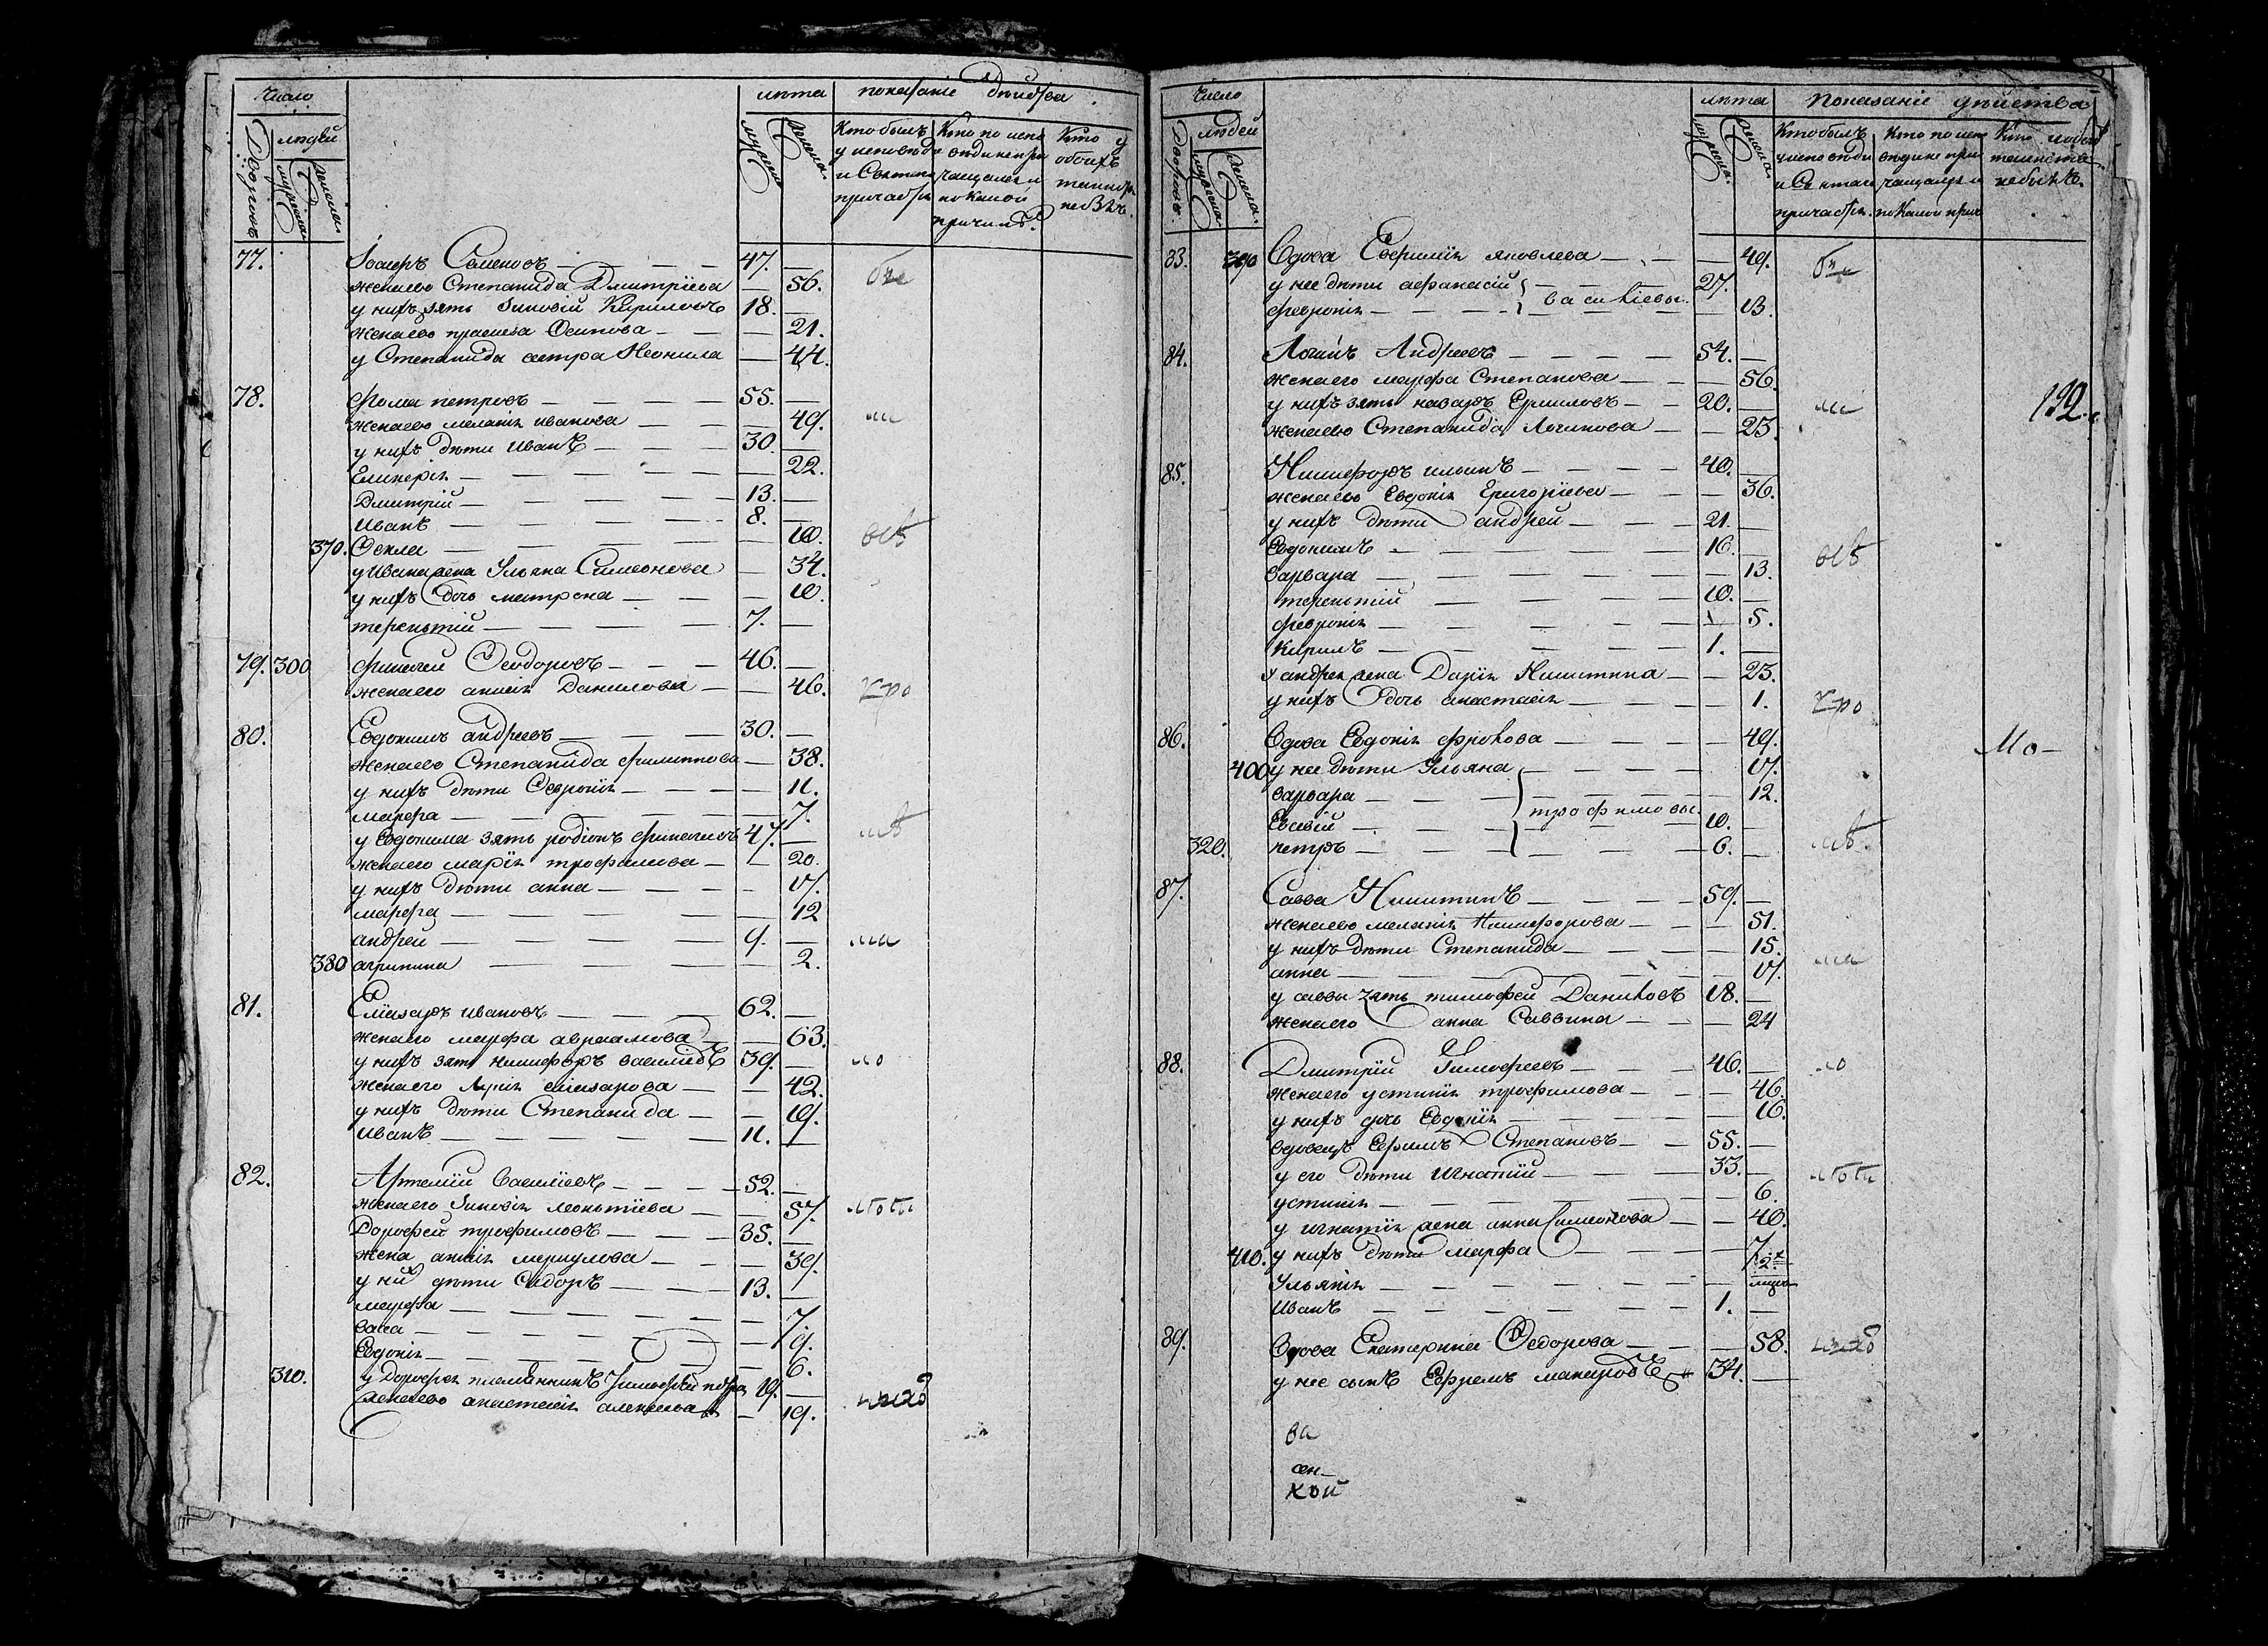 число
лѣта показаніе дѣйства
Дворовъ людей
мужеска женска
мужеска женска
Кто былъ у исповѣди и Святаго причастія
Кто по исповѣдился не причащался и по какой причинѣ
Кто у обоихъ не былъ
77. Іосифъ Семеновъ 47. бы
жена ево Степанида Дмитрїева 56.
у нихъ зять Зиновій Кириловъ 18.
жена ево Осипова 21.
у Степаниды сестра Неонила 44.
78. Фома петровъ 55.
жена ево меланія иванова 49. ли
у нихъ дѣти иванъ 30.
Гликерія 22.
Дмитрій 13.
иванъ 8.
370. Фекла 10. всѣ
у Ивана жена Ульяна Симеонова 34.
у нихъ дочь матрона 10.
терентій 7.
79. 300 Федоровъ 46.
жена его анисія Данилова 46. у про
80. Евдокимъ андреевъ 30.
жена ево Степанида филиппова 38.
у нихъ дѣти Феврониія 11.
марфа 7.
у Евдокима зять родіонъ 47. спѣ
жена его марія трофимова 20.
у нихъ дѣти анна 17.
марфа 12
андрей 9. ша
380 агрипина 2.
81. Елїазаръ ивановъ 62.
жена его марфа авраамова 63.
у нихъ зять никифоръ васильевъ 39. го
жена его елиазарова 42.
у нихъ дѣти Степанида 19.
иванъ 11.
82. Артемій васильевъ 52.
жена его Зиновія леонтіева 57.
Дорофей трофимовъ 35.
жена анисія меркулова 39.
у них дѣти Сидоръ 13.
марфа 7.
васса 9.
Евдокія 6.
310. у Дорофея племянникъ Тимофей 19.
жена ево анастасія алексѣева 19.
число
лѣта Показаніе дѣйства
Дворовъ людей
мужеска женска
мужеска женска
192.
83. 390 Вдова Евфимія яковлева 49. бы
у нее дѣти афанасій 27.
василіевы
феврониія 13.
84. Логинъ Андреевъ 54.
жена его марфа Степанова 56.
у нихъ зять назаръ Ермиловъ 20. ли
жена ево Степанида Логинова 23.
85. Никифоръ ильинъ 40.
жена ево Евдокія Григорїева 36.
у нихъ дѣти андрей 21.
Евдокимъ 16. всѣ
варвара 13.
терентій 10.
феврониія 5.
кирилъ 1.
у андрея жена Дарія Никитина 23.
у нихъ дочь анастасія 1. у про
86. Вдова Евдокія фролова 49. Мо-
400 у нее дѣти Ульяна 17.
варвара 12.
трофимовы.
Евсевій 10.
320. петръ 6.
87. Савва Никитинъ 59.
жена ево меланія Никифорова 51.
у нихъ дѣти Степанида 15.
анна 17. ша
у саввы зять тимофей Даниловъ 18.
жена его анна Саввина 24
88. Дмитрїй Тимофеевъ 46. го
жена его устинія трофимова 46.
у нихъ дочь Евдокія 16.
вдовецъ Ефимъ Степановъ 55.
у его дѣти игнатій 33.
устинія 6.
у игнатія жена анна Симеонова 40.
410. у нихъ дѣти марфа 7
Ульянія 2.
иванъ 1.
89. вдова Екатерина Федорова 58.
у нее сынъ Ефремъ макаровъ 34.
ва
сен-
кой